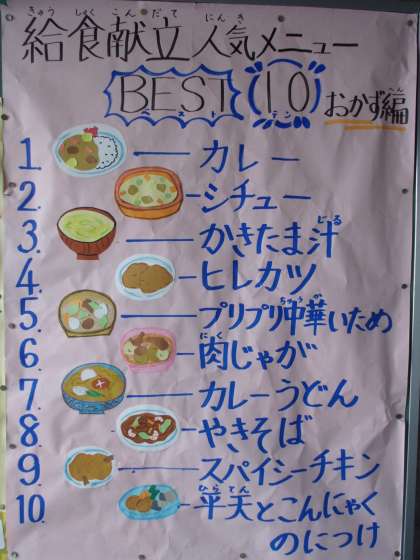 きゅう しょく こん だて にん き
給食献立 人気メニュー
BEST 10 おかず編
ベスト テン へん
1 カレー
2. シチュー
3. かきたま汁
じる
4. ヒレカツ
5. プリプリ中華いため
ちゅうか
6. 肉じゃが
にく
7. カレーうどん
8. やきそば
9. スパイシーチキン
10. 平天とこんにゃく
ひらてん
のにつけ